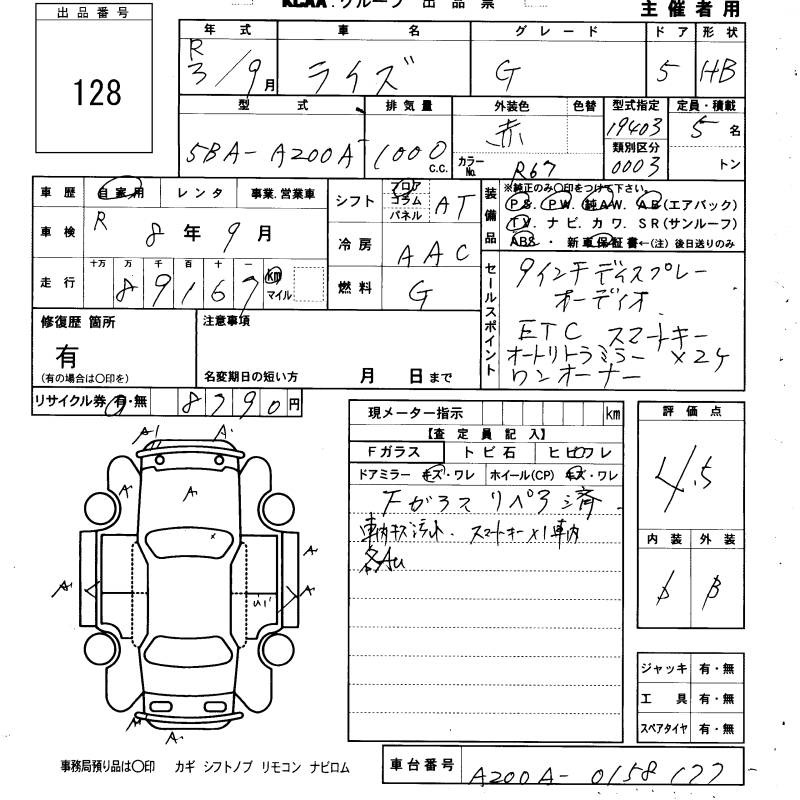 出品番号
128
KCAA.グループ 出品票
主催者用
年式 車名 グレード ドア 形状
R 3/9月 ライズ G 5 HB
型式 排気量 外装色 色替 型式指定 定員・積載
5BA-A200A 1000 c.c. 赤 19403 5名
カラーNo. R67 類別区分 0003 トン
車歴 自家用 レンタ 事業.営業車
車検 R 8年9月
走行 十万 万 千 百 十 一
89167 km マイル
シフト フロア コラム パネル AT
冷房 AAC
燃料 G
装備品
※純正のみ〇印をつけて下さい。
P.S. P.W. 純A.W. A.B(エアバック)
T.V. ナビ.カワ.SR(サンルーフ)
ABS・新車保証書←(注)後日送りのみ
セールスポイント
9インチディスプレー
オーディオ
ETC スマートキー
オートリトラミラー ×2ケ
ワンオーナー
修復歴 箇所
有
(有の場合は〇印を)
注意事項
名変期日の短い方 月 日まで
リサイクル券 有・無 8790円
現メーター指示 km
【査定員記入】
Fガラス トビ石 ヒビワレ
ドアミラー キズ・ワレ ホイール(CP) キズ・ワレ
Fガラスリペア済
車内キズ シミ スマートキー×1車内
各AU
評価点
4.5
内装 外装
B
A1 A
A A
A
A A
A A
A
A
ジャッキ 有・無
工具 有・無
スペアタイヤ 有・無
事務局預り品は〇印 カギ シフトノブ リモコン ナビロム
車台番号 A200A-0158177